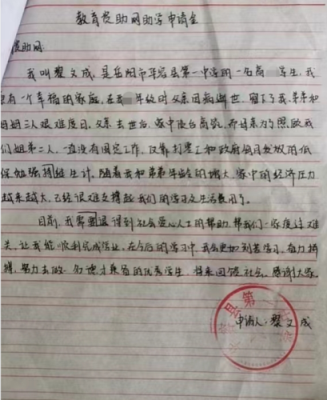 教育资助网助学申请书
资助网:
我叫黎文成,是岳阳市华容县第一中学的一名高 学生,我
有一个幸福的家庭,在 年级时父亲因病逝世,留下了我、弟弟和
母亲三人艰难度日,父亲去世后,家中没有 ,而母亲为了照顾我
们姐弟二人,一直没有固定工作,仅靠打零工和政府领回 放的低
保勉强 生计,随着我和弟弟年龄的增大,家中的经济压力
越来越大,已经很难支撑起我们的学习及生活费用了。
目前,我希望 得到社会爱心人士的帮助,帮我们一家度过难
关,让我能 顺利完成学业,在今后的学习中,我会更加刻苦学习,奋力拼
搏,努力去做一名德才兼备的优秀学生,将来回馈社会,感谢大家。
申请人:黎文成
县第